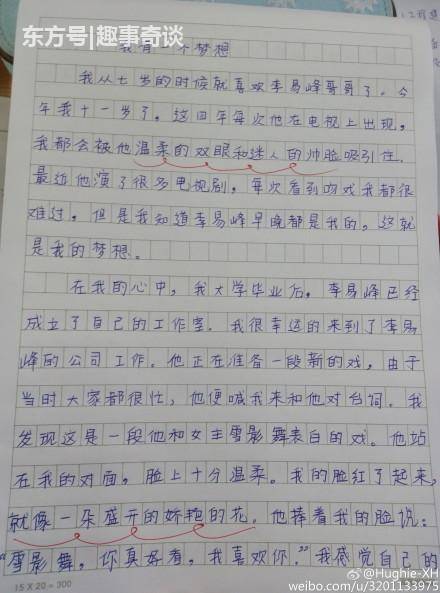 东方号|趣事奇谈
我有一个梦想
我从七岁的时候就喜欢李易峰哥哥了。今
年我十一岁了。这四年每次他在电视上出现,
我都会被他温柔的双眼和迷人的帅脸吸引住。
最近他演了很多电视剧,每次看到吻戏我都很
难过,但是我知道李易峰早晚都是我的,这就
是我的梦想。
在我的心中,我大学毕业后,李易峰已经
成立了自己的工作室。我很幸运的来到了李易
峰的公司工作。他正在准备一段新的戏,由于
当时大家都很忙,他便喊我来和他对台词。我
发现这是一段他和女主雪影舞表白的戏。他站
在我的对面,脸上十分温柔。我的脸红了起来,
就像一朵盛开的娇艳的花。他捧着我的脸说:
“雪影舞,你真好看,我喜欢你。”我感觉自己的
15×20=300
@Hughie-XH
weibo.com/u/3201133975